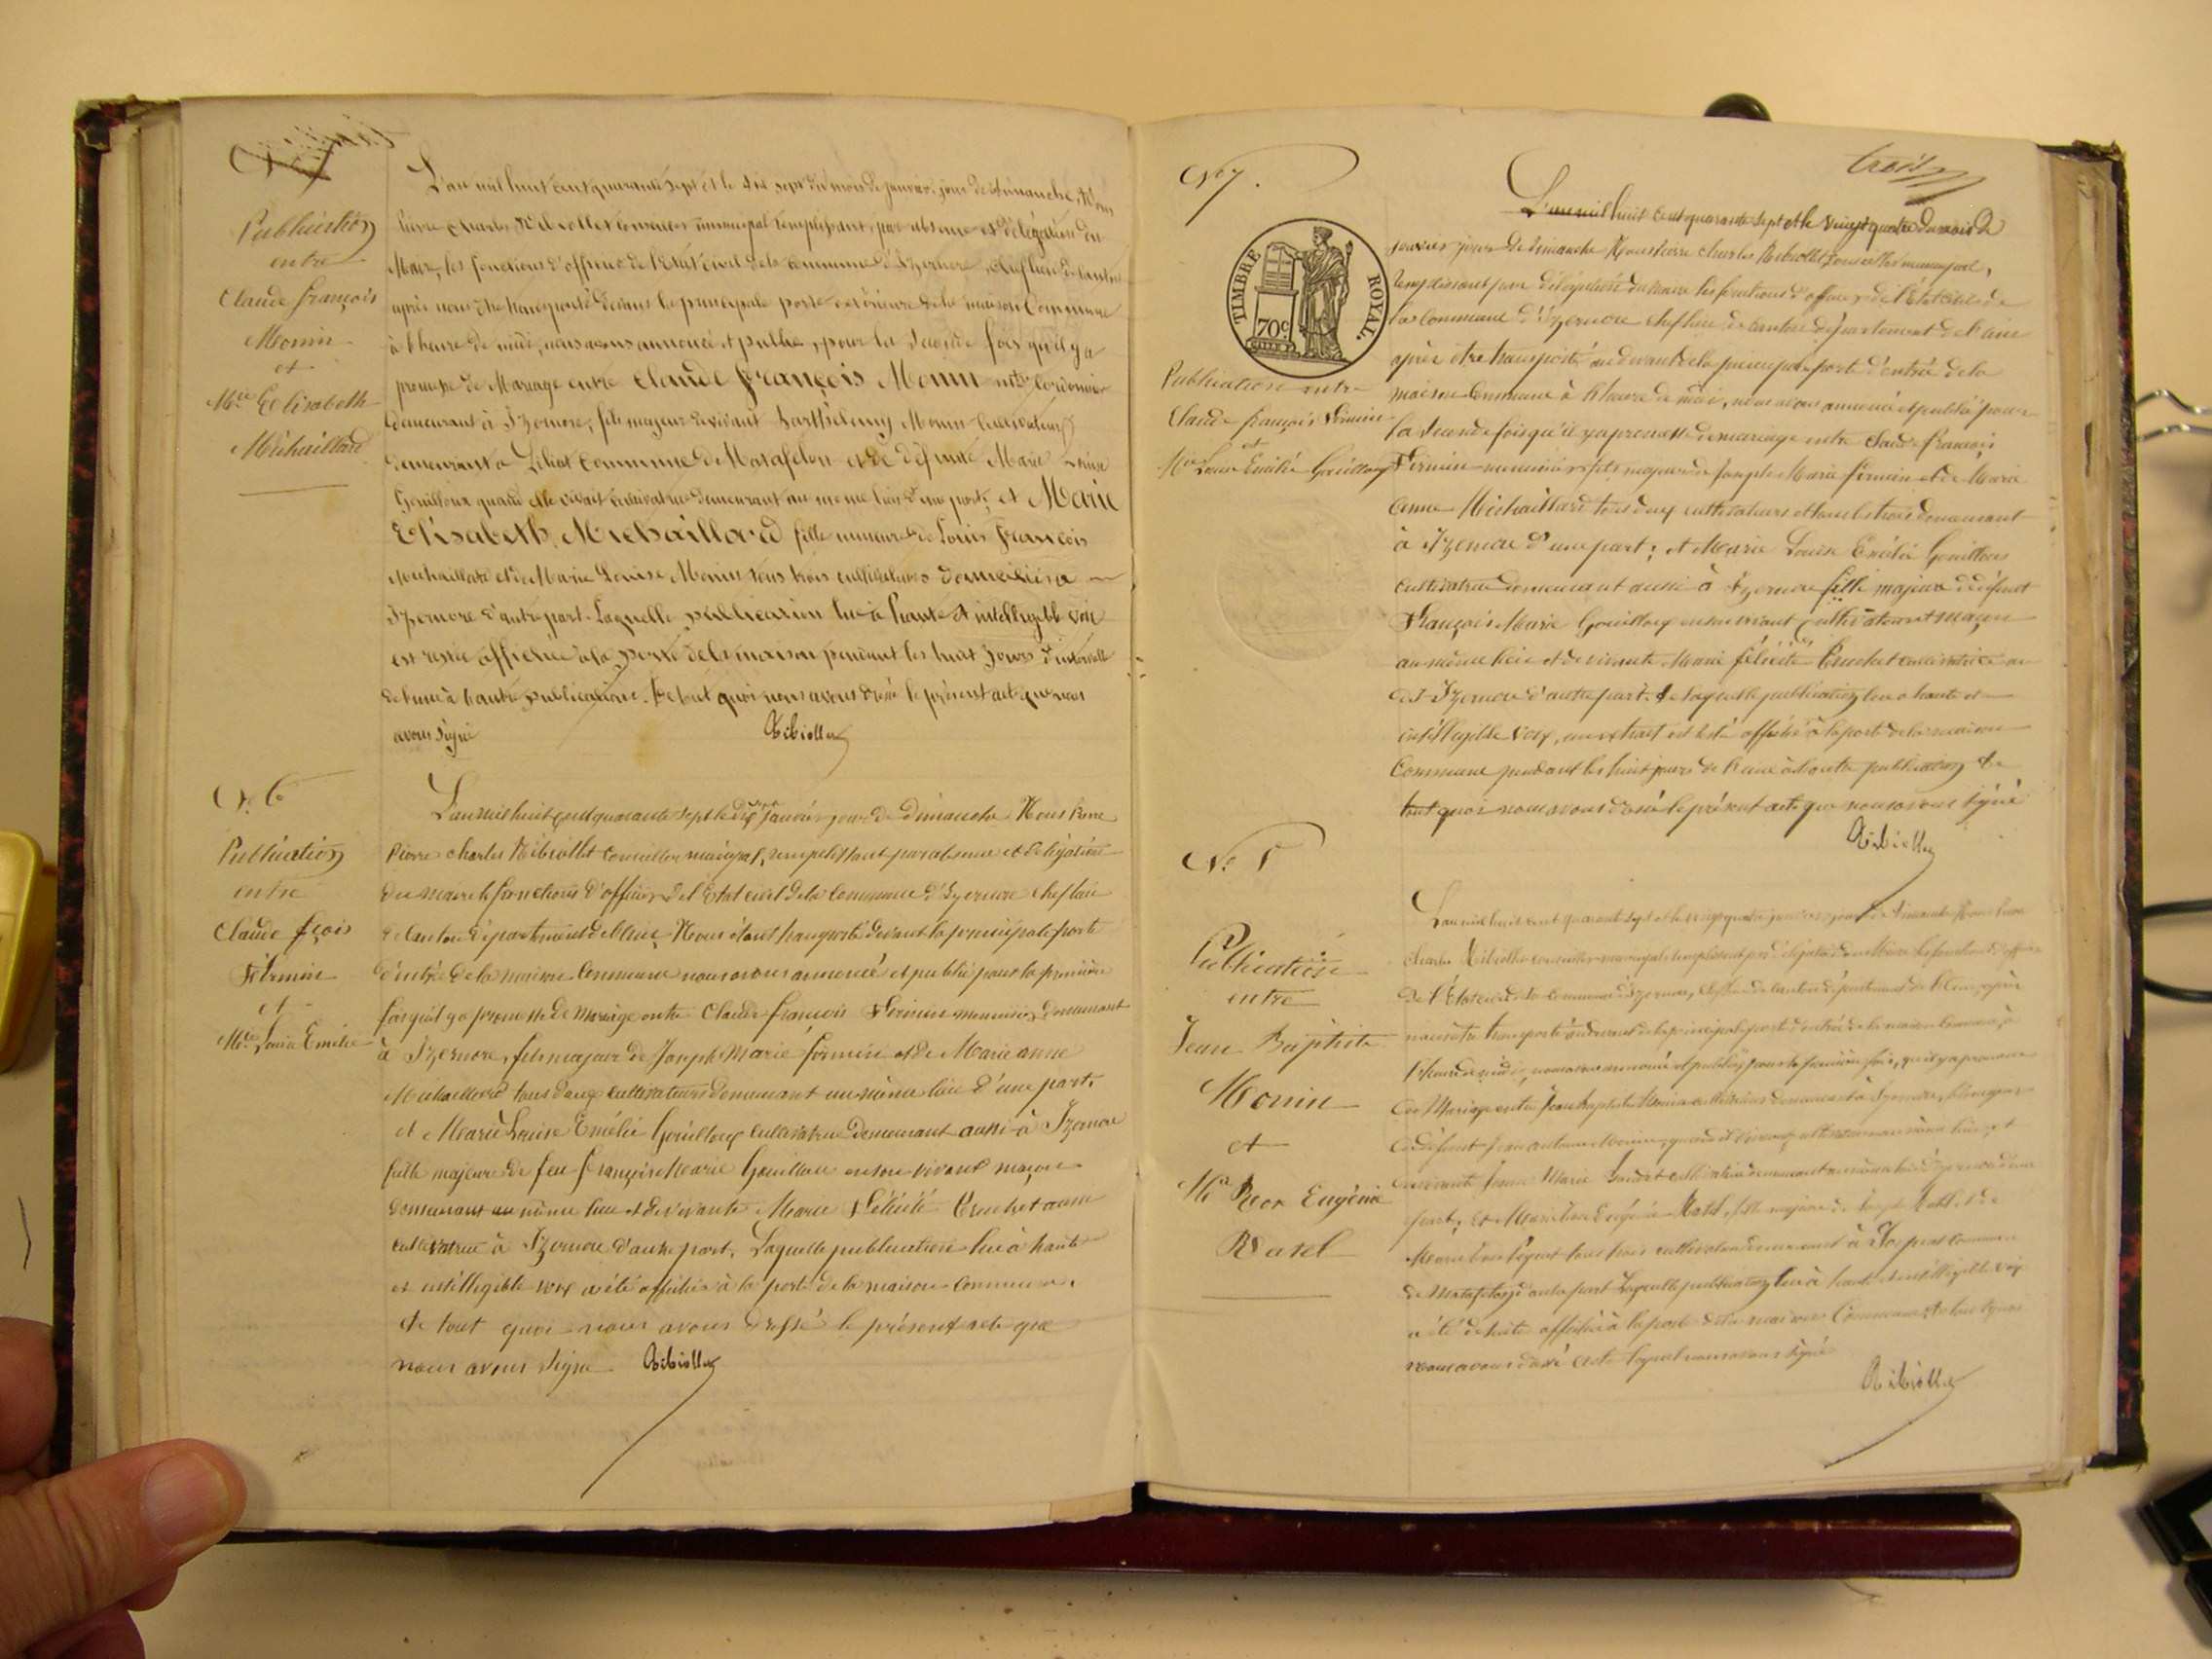 Publication
entre
Claude françois
Monin
et
Mie Elisabeth
Michaillard
L'an mil huit cent quarante sept et le dix sept du mois de janvier jour de dimanche, Nous
Pierre Charles Ribiollet Conseiller municipal remplissant, par absence et délégation du
Maire, les fonctions d'officier de l'Etat civil de la Commune d'Izernore, chef lieu de canton
après nous être transporté devant la principale porte extérieure de la maison Commune
à l'heure de midi, nous avons annoncé et publié, pour la seconde fois qu'il y a
promesse de Mariage entre Claude françois Monin Cordonnier
demeurant à Izernore, fils majeur de vivant Barthélemy Monin Cultivateur
demeurant à Commune de Matafelon et de défunte Marie
Gouilloux quand elle vivait cultivatrice demeurant au même lieu d'une part, et Marie
Elisabeth Michaillard fille mineure de Louis François
Michaillard et de Marie Louise Monin tous trois cultivateurs domiciliés à
Izernore d'autre part. Laquelle publication lue à haute et intelligible voix
est restée affichée à la porte de la maison pendant les huit jours d'intervalle
de l'une à l'autre publication. De tout quoi nous avons dressé le présent acte que nous
avons signé Ribiollet
N. 6
Publication
entre
Claude fçois
Firmin
et
Mie Louise Emélie
L'an mil huit cent quarante sept le dix sept janvier jour de Dimanche Nous Pierre
Pierre Charles Ribiollet Conseiller municipal, remplissant par absence et délégation
du maire les fonctions d'officier de l'Etat civil de la Commune d'Izernore chef lieu
de Canton département de l'Ain, Nous étant transporté devant la principale porte
d'entrée de la maison Commune nous avons annoncé et publié pour la première
fois qu'il y a promesse de mariage entre Claude françois Firmin menuisier demeurant
à Izernore, fils majeur de Joseph Marie firmin et de Marie anne
Michaillard tous deux cultivateurs demeurant au même lieu d'une part,
et Marie Louise Emélie Gouilloux Cultivatrice demeurant aussi à Izernore
fille majeure de feu françois Marie Gouilloux en son vivant maçon
demeurant au même lieu et de vivante Marie Félicité Cruchet aussi
cultivatrice à Izernore d'autre part. Laquelle publication lue à haute
et intelligible voix a été affichée à la porte de la maison Commune.
De tout quoi nous avons dressé le présent acte que
nous avons signé Ribiollet
trois
No 7.
TIMBRE ROYAL.
70c
Publication entre
Claude françois Firmin
et
Mie Louise Emélie Gouilloux
L'an mil huit cent quarante sept et le vingt quatre du mois de
janvier jour de dimanche Nous Pierre Charles Ribiollet Conseiller municipal,
remplissant par délégation du maire les fonctions d'officier de l'Etat Civil de
la Commune d'Izernore chef lieu de Canton département de l'ain
après être transporté au devant de la principale porte d'entrée de la
maison Commune à l'heure de midi, nous avons annoncé et publié pour
la seconde fois qu'il y a promesse de mariage entre Claude françois
Firmin menuisier fils majeur de Joseph Marie firmin et de Marie
anne Michaillard tous deux cultivateurs et tous les trois demeurant
à Izernore d'une part; et Marie Louise Emélie Gouilloux
cultivatrice demeurant aussi à Izernore fille majeure de défunt
François Marie Gouilloux en son vivant cultivateur et maçon
au même lieu et de vivante Marie félicité Cruchet cultivatrice au
dit Izernore d'autre part. de laquelle publication lue à haute et
intelligible voix, un extrait est resté affiché à la porte de la maison
Commune pendant les huit jours de l'une à l'autre publication De
tout quoi nous avons dressé le présent acte que nous avons signé
Ribiollet
No 8
Publication
entre
Jean Baptiste
Monin
et
Mie Eugénie
Ratel
L'an mil huit cent quarante sept et le vingt quatre janvier jour de dimanche Nous Pierre
Charles Ribiollet conseiller municipal remplissant par délégation du Maire les fonctions d'officier
de l'Etat civil de la Commune d'Izernore, chef lieu de canton département de l'Ain, après
nous être transporté au devant de la principale porte d'entrée de la maison Commune, à
l'heure de midi, nous avons annoncé et publié pour la première fois, qu'il y a promesse
de Mariage entre Jean Baptiste Monin cultivateur demeurant à Izernore, fils majeur
de défunt Jean antoine Monin, quand il vivait cultivateur au même lieu, et
de vivante Marie cultivatrice demeurant au même lieu d'Izernore d'une
part; Et Marie Eugénie Ratel, fille majeure de Joseph Ratel et de
Marie tous trois cultivateurs demeurant à Commune
de Matafelon d'autre part Laquelle publication lue à haute et intelligible voix
a été de suite affichée à la porte de la maison Commune De tout quoi
nous avons dressé acte lequel nous avons signé
Ribiollet